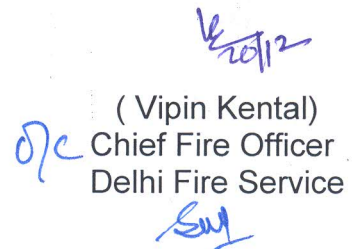 20/12
( Vipin Kental)
O/C Chief Fire Officer
Delhi Fire Service